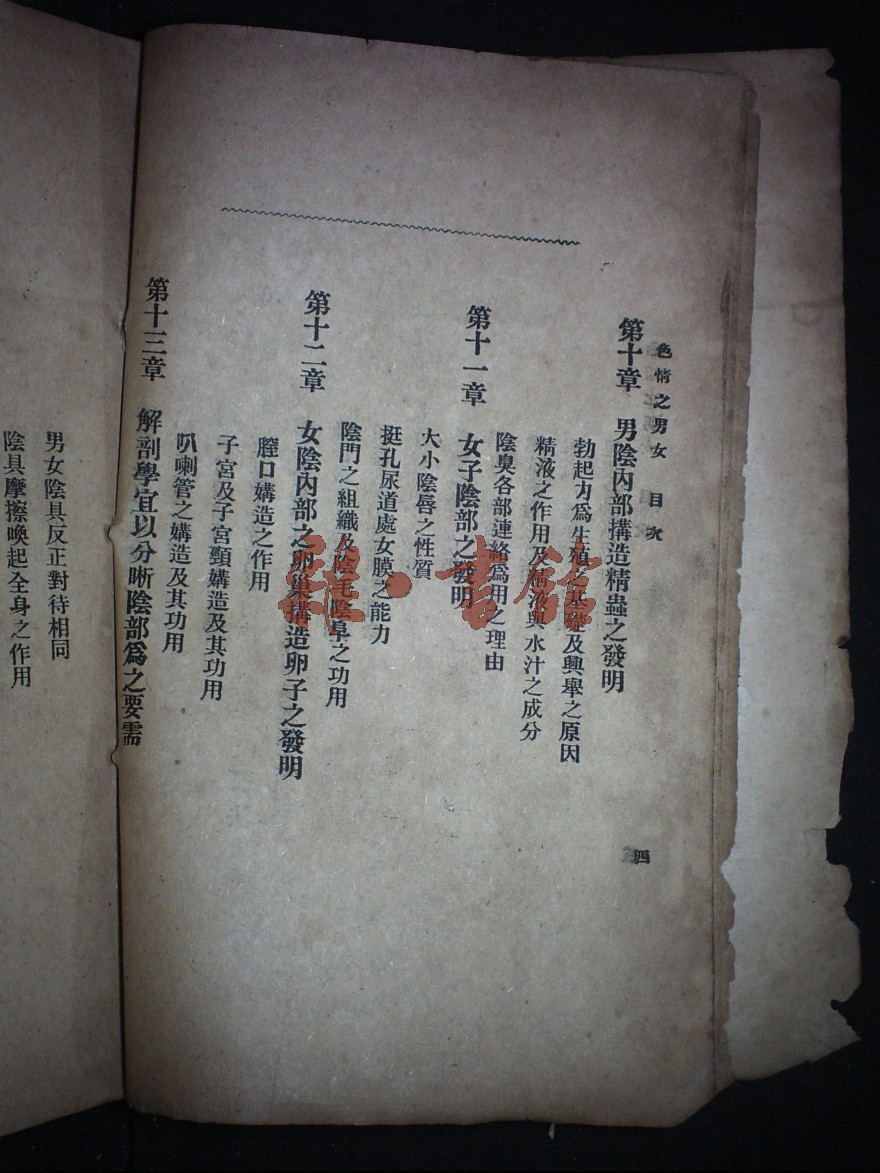 色情之男女 目次
四
第十章 男陰內部搆造精蟲之發明
勃起力爲生殖之基礎及興舉之原因
精液之作用及精液與水汁之成分
陰臭各部連絡爲用之理由
第十一章 女子陰部之發明
大小陰唇之性質
挺孔尿道處女膜之能力
陰門之組織及陰毛陰阜之功用
第十二章 女陰內部之卵巢搆造卵子之發明
膣口媾造之作用
子宮及子宮頸媾造及其功用
叭喇管之媾造及其功用
第十三章 解剖學宜以分晰陰部爲之要需
男女陰具反正對待相同
陰具摩擦喚起全身之作用
雜·書館